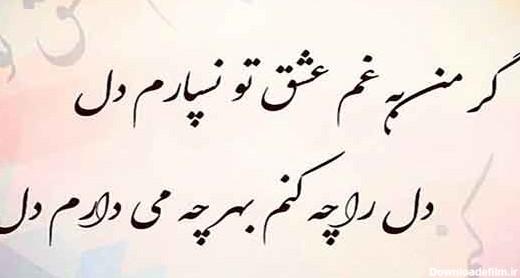 گر من به غم عشق تو نسپارم دل
دل را چه کنم بهر چه می دارم دل
Downloadefilm.ir